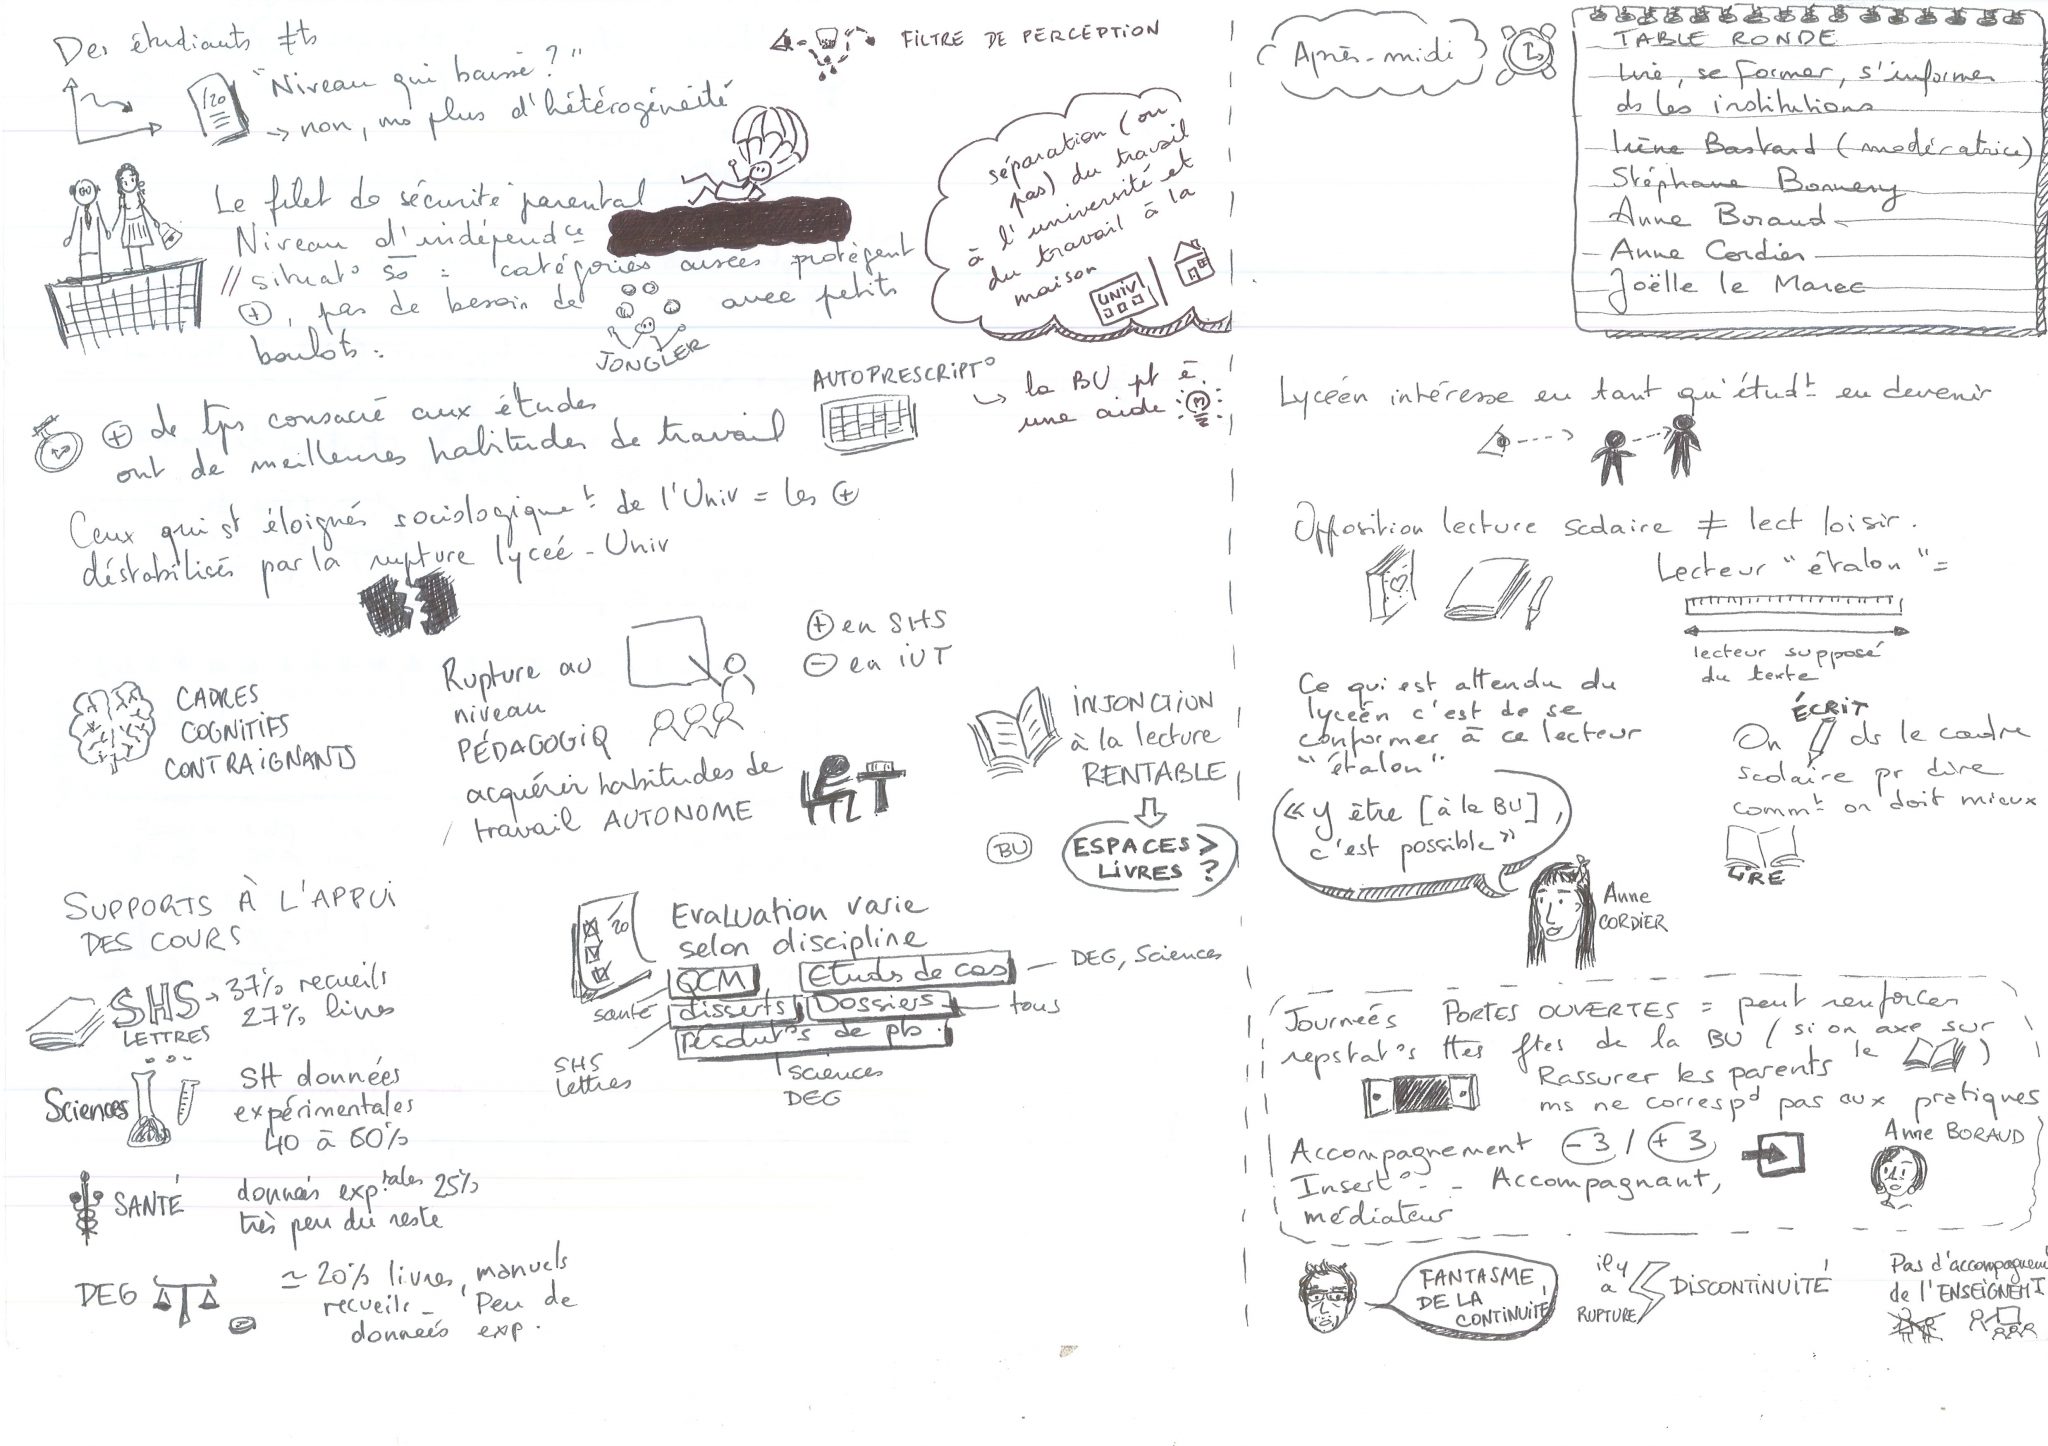 Des étudiants ≠ts
/20
"Niveau qui baisse ?"
→ non, ms plus d'hétérogénéité
FILTRE DE PERCEPTION
Le filet de sécurité parental
Niveau d'indépendce
// situat° So = catégories aisées protègent
⊕, pas de besoin de
JONGLER
avec petits
boulots.
séparation (ou
pas) du travail
à l'université et
du travail à la
maison
UNIV
⊕ de tps consacré aux études
ont de meilleures habitudes de travail
AUTOPRESCRIPT°
↪ la BU pt ê
une aide
Ceux qui st éloignés sociologiquet de l'Univ = les ⊕
déstabilisés par la rupture lyceé - Univ
CADRES
COGNITIFS
CONTRAIGNANTS
Rupture au
niveau
PÉDAGOGIQ
acquérir habitudes de
travail AUTONOME
⊕ en SHS
⊖ en IUT
INJONCTION
à la lecture
RENTABLE
BU
ESPACES >
LIVRES ?
SUPPORTS À L'APPUI
DES COURS
SHS → 37% recueils
LETTRES 27% livres
Sciences
SH données
expérimentales
40 à 60%
SANTÉ
données exp.tales 25%
très peu du reste
DEG
≃ 20% livres, manuels
recueils - Peu de
données exp.
/20
Evaluation varie
selon discipline
QCM
Etuds de cas — DEG, Sciences
santé
disserts
Dossiers — tous
résolut°s de pb.
SHS
Lettres
Sciences
DEG
Après-midi
TABLE RONDE
Lire, se former, s'informer
ds les institutions
Irène Bastard (modératrice)
Stéphane Bonnery
Anne Boraud
Anne Cordier
Joëlle le Marec
Lycéen intéresse en tant qu'étudt en devenir
Opposition lecture scolaire ≠ lect loisir.
Lecteur "étalon" =
lecteur supposé
du texte
Ce qui est attendu du
lyceén c'est de se
conformer à ce lecteur
"étalon"
ÉCRIT
On ds le cadre
scolaire pr dire
commt on doit mieux
LIRE
« Y être [à la BU],
c'est possible »
Anne
CORDIER
Journeés PORTES OUVERTES = peut renforcer
repstat°s ttes ftes de la BU (si on axe sur
le )
Rassurer les parents
ms ne correspd pas aux pratiques
Accompagnement -3 / +3
Insert° - - Accompagnant,
médiateur
Anne BORAUD
FANTASME
DE LA
CONTINUITÉ
il y
a
RUPTURE
DISCONTINUITÉ
Pas d'accompagnem
de l'ENSEIGNEMT